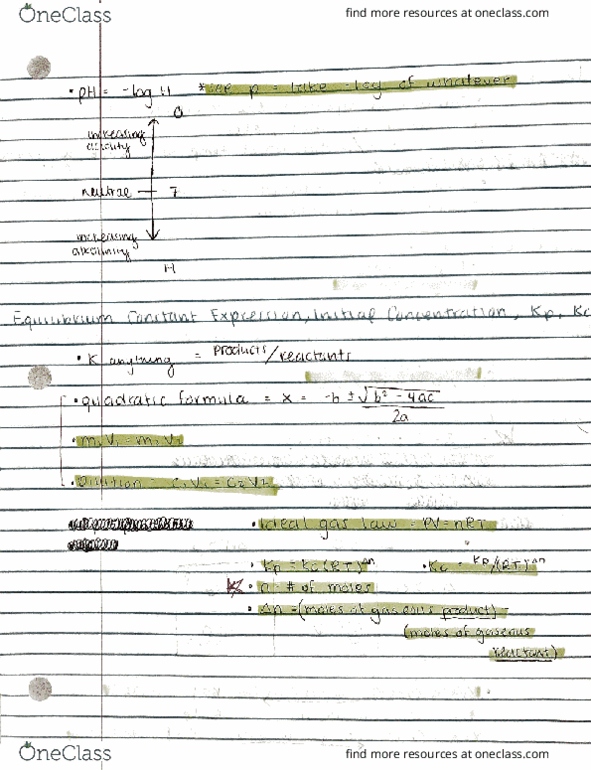 OneClass
find more resources at oneclass.com
• pH = -log H *see p = take -log of whatever
0
increasing
acidity
neutral 7
increasing
alkalinity
14
Equilibrium Constant Expression, Initial Concentration, Kp, Kc
• K anything = products/reactants
• quadratic formula = x = -b ± √b² - 4ac
2a
• m₁V₁ = m₂V₂
• Dilution = C₁V₁ = C₂V₂
• ideal gas law = PV = nRT
• Kp = Kc(RT)^Δn • Kc = Kp/(RT)^Δn
• n = # of moles
• Δn = (moles of gaseous product) -
(moles of gaseous
reactant)
OneClass
find more resources at oneclass.com